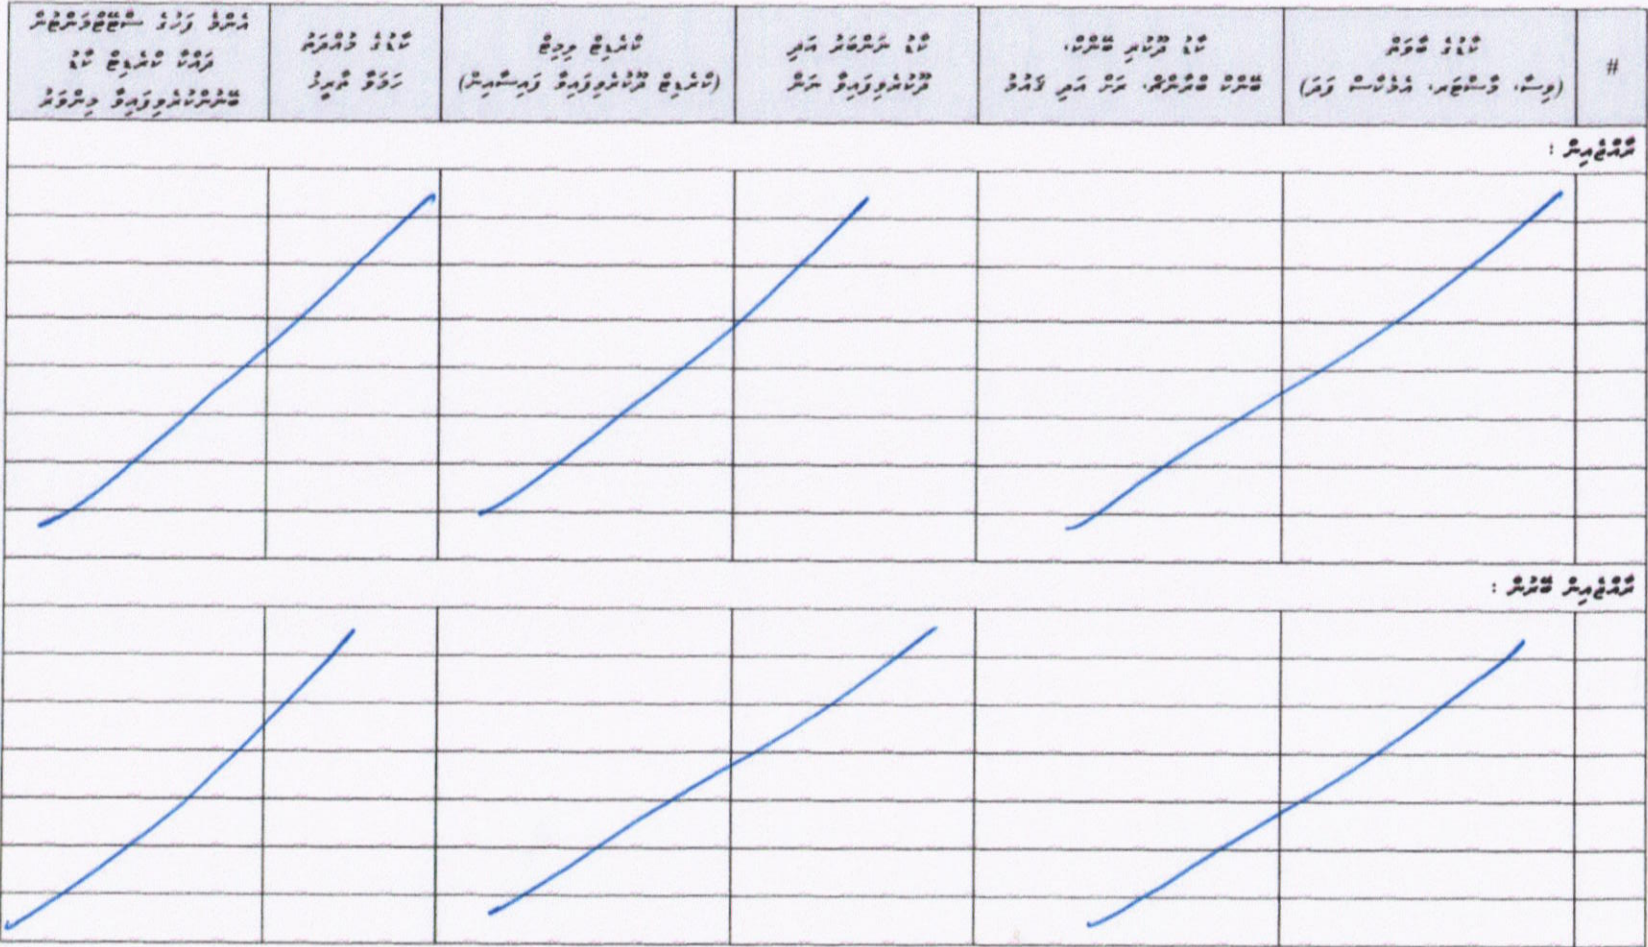 #
ކާޑުގެ ބާވަތް
(ވިސާ، މާސްޓަރ، އެމެކްސް ފަދަ)
ކާޑު ދޫކުރި ބޭންކް،
ބޭންކް ބްރާންޗް، ރަށް އަދި ޤައުމު
ކާޑު ނަންބަރު އަދި
ދޫކުރެވިފައިވާ ނަން
ކްރެޑިޓް ލިމިޓް
(ކްރެޑިޓް ދޫކުރެވިފައިވާ ފައިސާއިން)
ކާޑުގެ މުއްދަތު
ހަމަވާ ތާރީޚު
އެންމެ ފަހުގެ ސްޓޭޓްމަންޓުން
ދައްކާ ކްރެޑިޓް ކާޑު
ބޭނުންކުރެވިފައިވާ މިންވަރު
ރާއްޖެއިން :
ރާއްޖެއިން ބޭރުން :